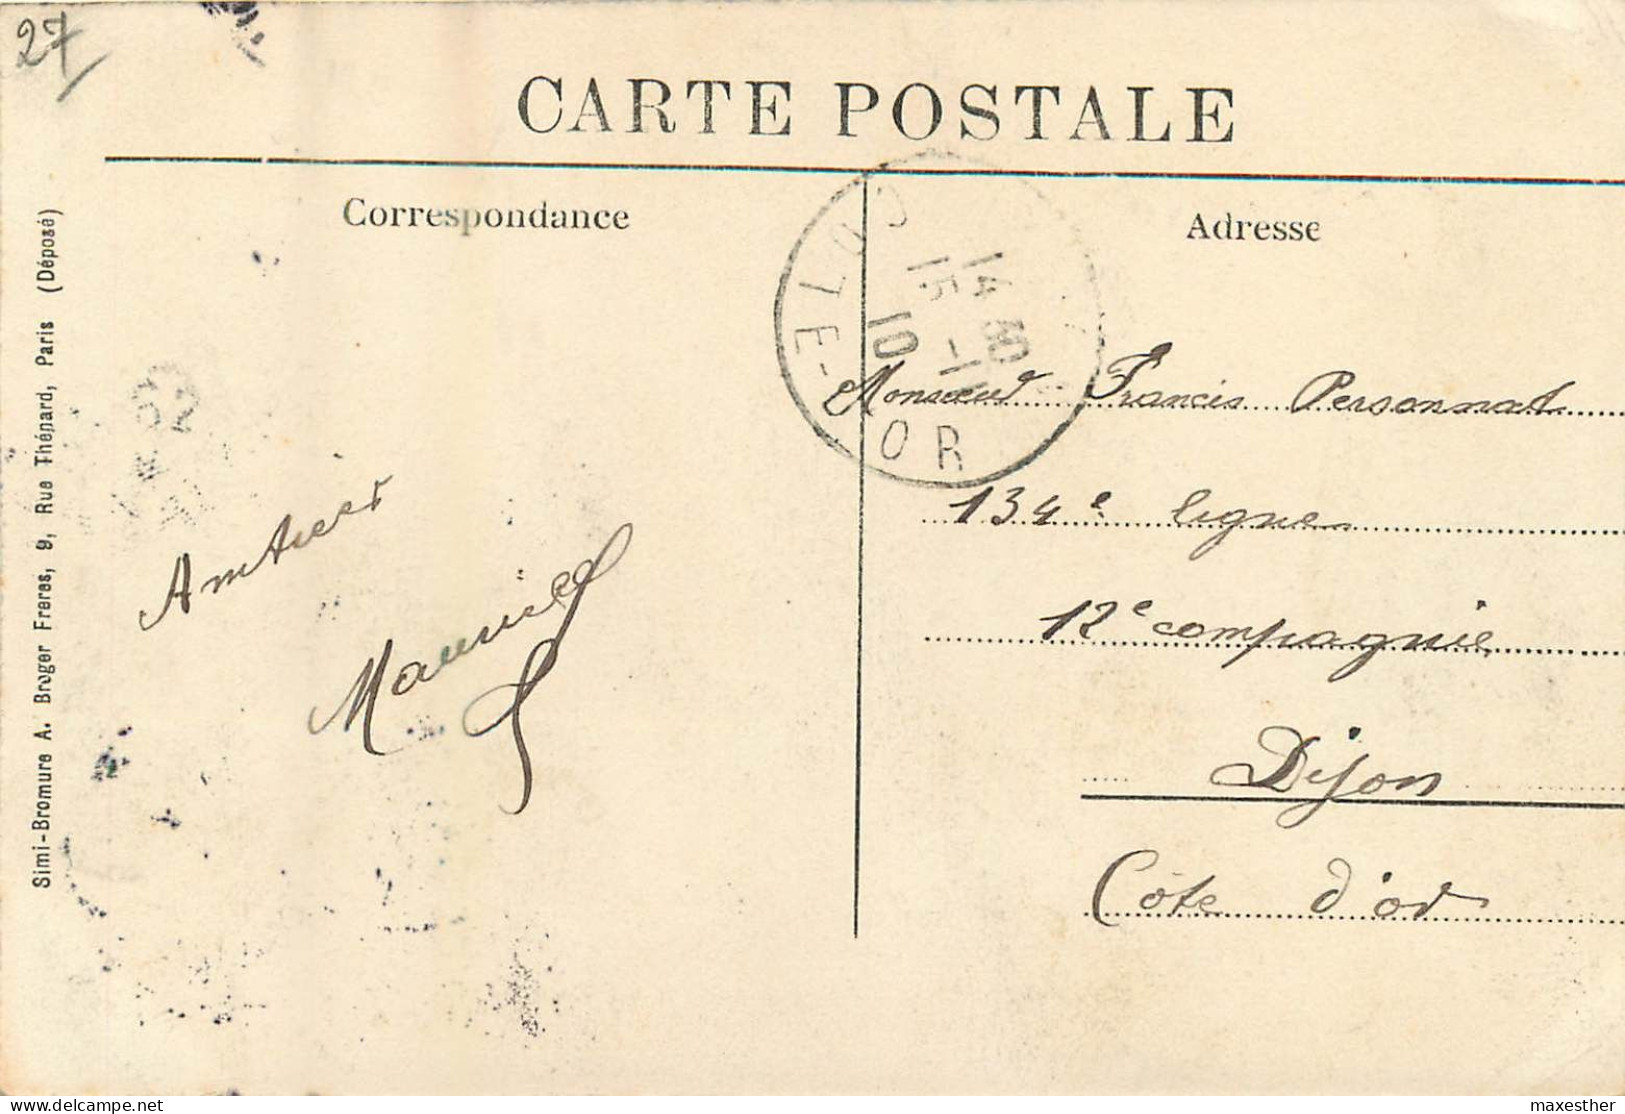 27
CARTE POSTALE
Correspondance
Adresse
Simi-Bromure A. Breger Freres, 9, Rue Thénard, Paris (Déposé)
COTE-D'OR
14 30
15 -1
10
Monsieur Francis Personnat
134e ligne
12e compagnie
Dijon
Côte d'or
Amitiés
Maurice
delcampe.net
maxesther